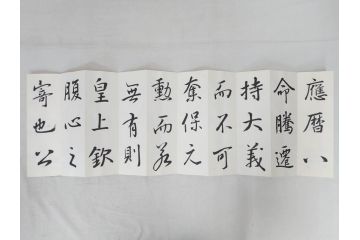 應曆八
命騰遷
持大義
而不可
奈保元
勲而若
無有則
皇上欽
腹心之
寄也公